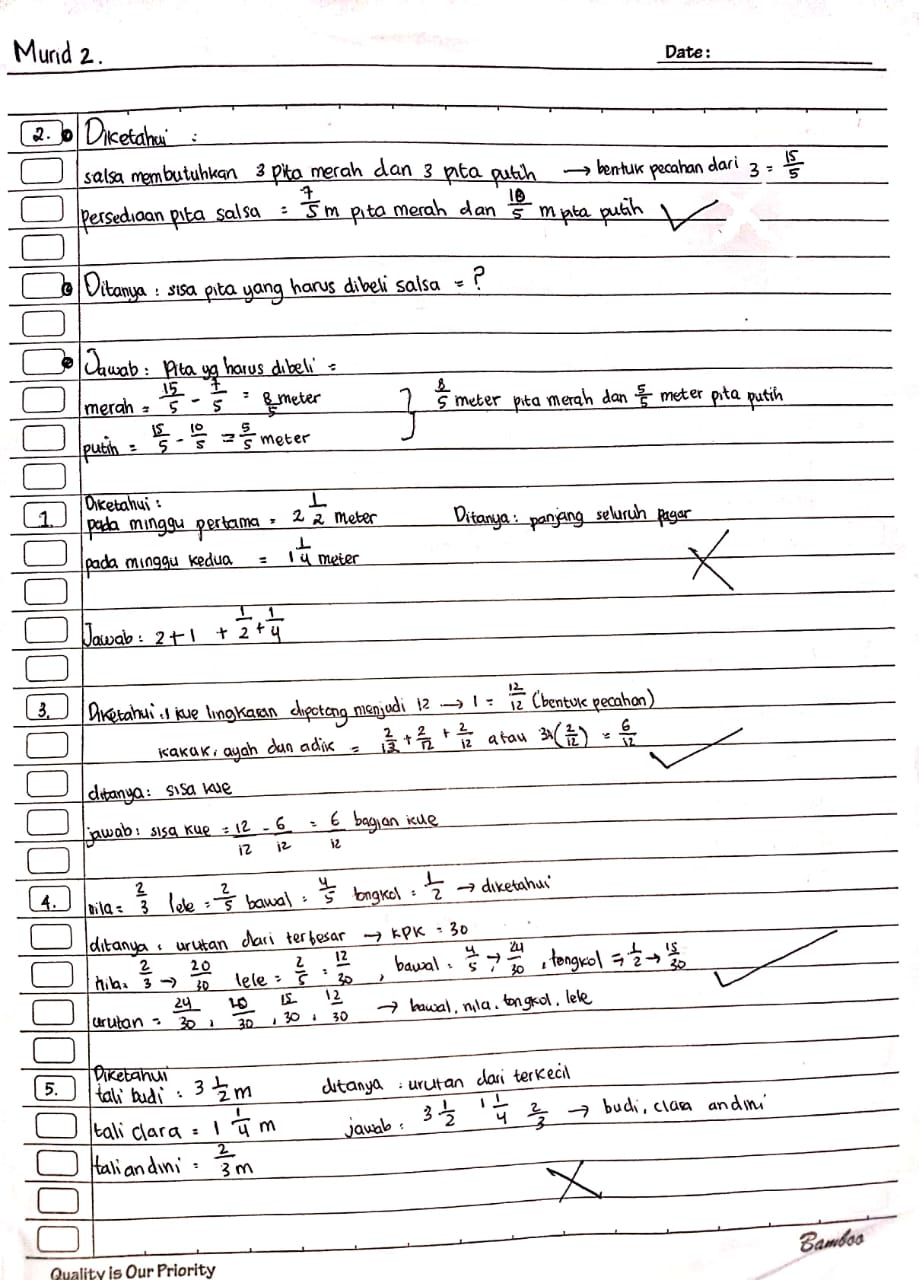 Murid 2.
Date:
2. Diketahui :
salsa membutuhkan 3 pita merah dan 3 pita putih → bentuk pecahan dari 3 = 15/5
Persediaan pita salsa = 7/5 m pita merah dan 10/5 m pita putih ✓
Ditanya : sisa pita yang harus dibeli salsa = ?
Jawab : Pita yg harus dibeli =
merah = 15/5 - 7/5 = 8/5 meter
putih = 15/5 - 10/5 = 5/5 meter
} 8/5 meter pita merah dan 5/5 meter pita putih
1. Diketahui :
pada minggu pertama = 2 1/2 meter
Ditanya : panjang seluruh pagar
pada minggu kedua = 1 1/4 meter
Jawab : 2 + 1 + 1/2 + 1/4
3. Diketahui : 1 kue lingkaran dipotong menjadi 12 → 1 = 12/12 (bentuk pecahan)
kakak, ayah dan adik = 2/12 + 2/12 + 2/12 atau 3x(2/12) = 6/12 ✓
ditanya : sisa kue
jawab : sisa kue = 12/12 - 6/12 = 6/12 bagian kue
4. nila = 2/3 lele = 2/5 bawal = 4/5 tongkol = 1/2 → diketahui
ditanya : urutan dari terbesar → KPK = 30
nila = 2/3 → 20/30 lele = 2/5 = 12/30 , bawal = 4/5 → 24/30 , tongkol = 1/2 → 15/30 ✓
urutan = 24/30 , 20/30 , 15/30 , 12/30 → bawal, nila, tongkol, lele
5. Diketahui
tali budi = 3 1/2 m
ditanya : urutan dari terkecil
tali clara = 1 1/4 m
jawab : 3 1/2 1 1/4 2/3 → budi, clara andini
tali andini = 2/3 m
Bamboo
Quality is Our Priority